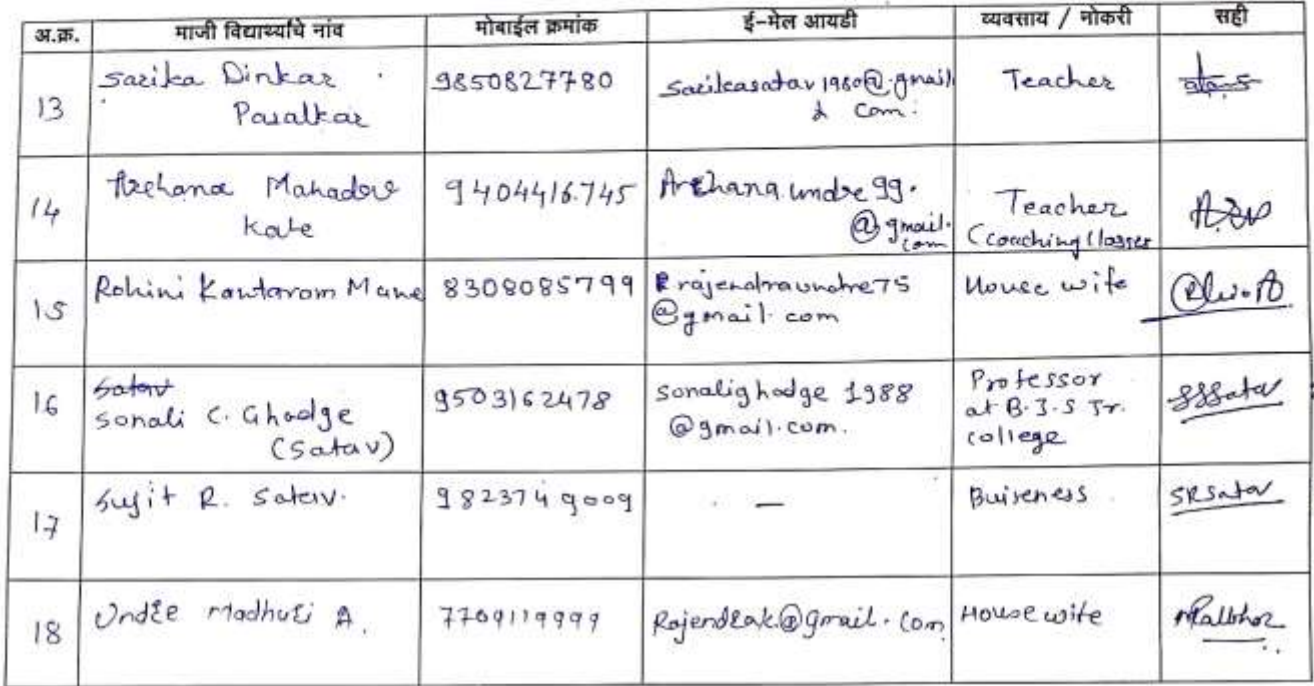 अ.क्र. माजी विद्यार्थ्यांचे नांव मोबाईल क्रमांक ई-मेल आयडी व्यवसाय / नोकरी सही
13 Sarika Dinkar Pasalkar 9850827780 sarikasatav1980@gmail.com Teacher
14 Archana Mahadev Kale 9404416745 Archana.undre99.@gmail.com Teacher (coaching classes
15 Rohini Kantaram Mane 8308085799 rajendraundre75@gmail.com House wife
16 Satav Sonali C. Ghadge (Satav) 9503162478 sonalighadge1988@gmail.com. Professor at B.J.S Jr. college SSSatav
17 Sujit R. Satav. 9823749009 — Buiseness SRSatav
18 Undre Madhuri A. 7709119999 Rajendrak@gmail.com House wife